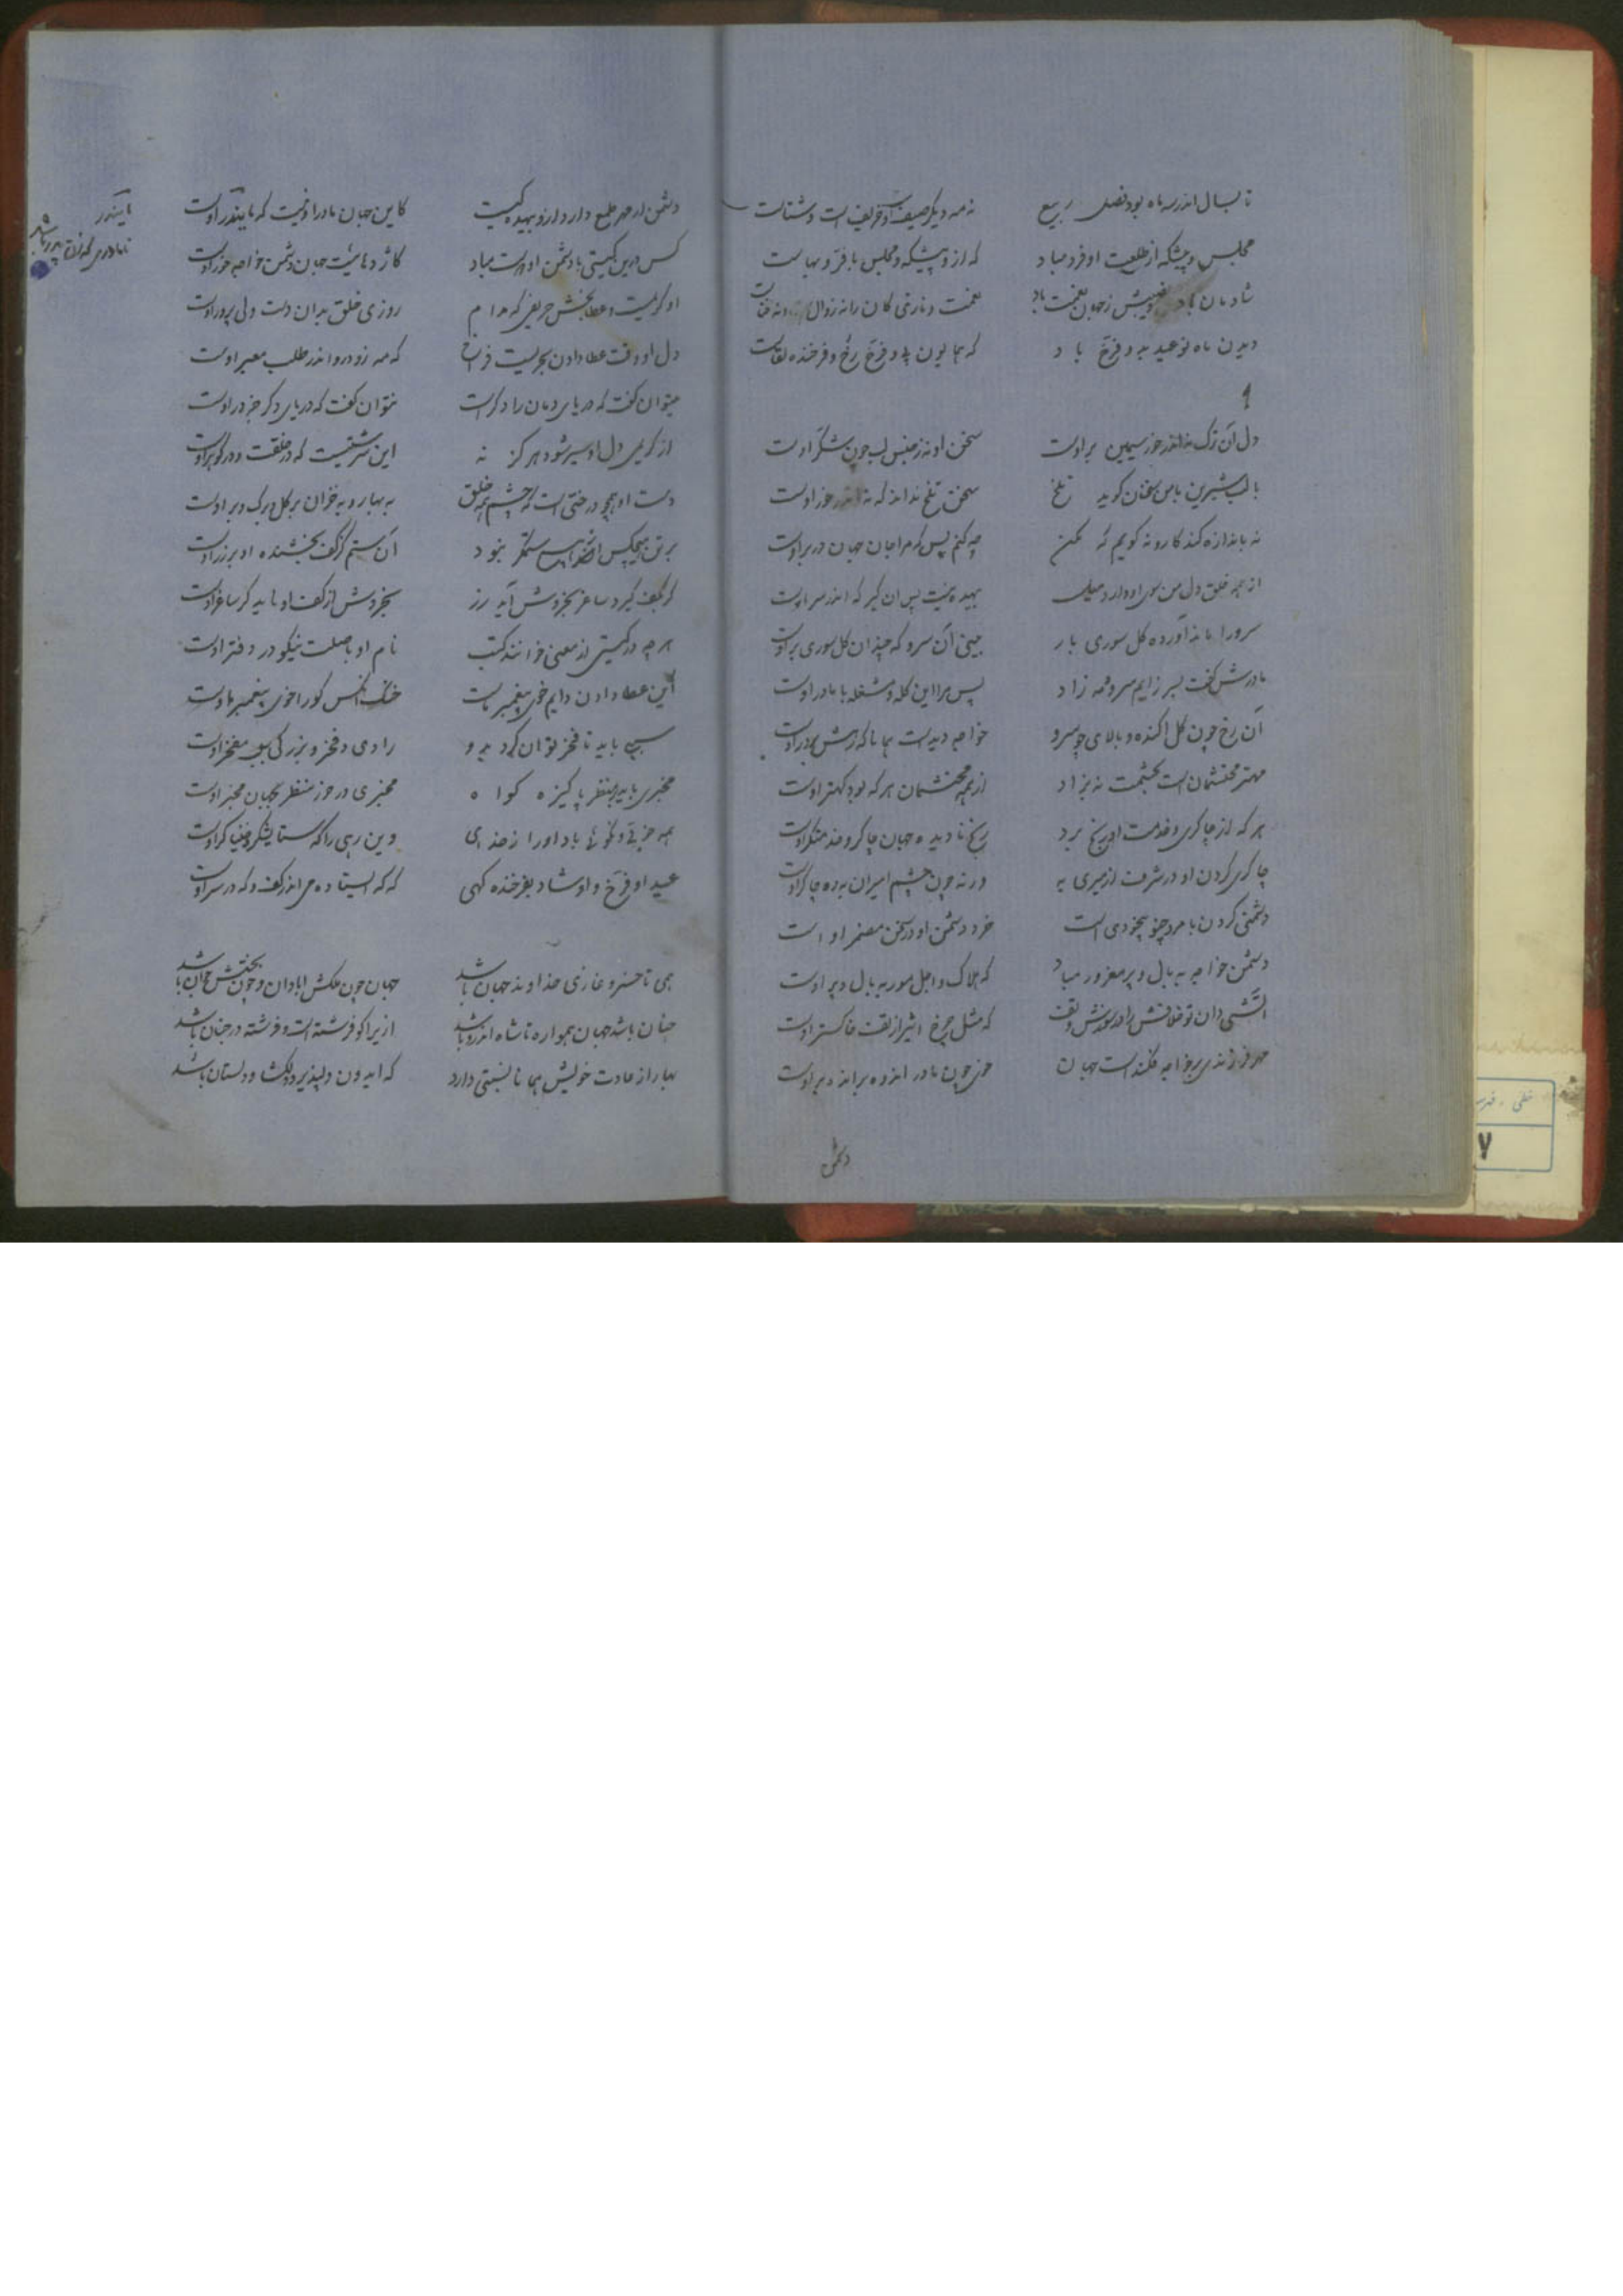 تا بسال اندر سه ماه بود فصل ربیع
نه مه دیگر صیف است و خریف است و شتاست
مجلس و پیشگه از طلعت او فرد مباد
که ازو پیشگه و مجلس با فر و بهاست
شادمان باد و نصیبش ز جهان نعمت باد
نعمت و نازی کان را نه زوال و نه فناست
دیدن ماه نو عید بدو فرخ باد
که همایون پی و فرخ رخ و فرخنده لقاست
دل آن ترک نه اندر خور سیمین بر اوست
سخن او نه ز جنس لب چون شکر اوست
با لب شیرین با من سخنان گوید تلخ
سخن تلخ نداند که نه اندر خور اوست
نه باندازه کند کار و نه گویم که مکن
چه کنم پس که مرا جان جهان در بر اوست
از همه خلق دل من سوی او دارد میل
بیهده نیست پس آن کبر که اندر سر اوست
سرو را ماند آورده گل سوری بار
بینی آن سرو که چندان گل سوری بر اوست
مادرش گفت پسر زایم سرو و مه زاد
پس مرا این گله و مشغله با مادر اوست
آن رخ چون گل آکنده و بالای چو سرو
خواجه دیدست همانا که رهش بر در اوست
مهتر محتشمان است بحشمت نه بزاد
از همه محتشمان هر که بود کهتر اوست
هر که از چاکری و خدمت او رنج برد
رنج نادیده جهان چاکر و خدمتگر اوست
چاکری کردن او در شرف از میری به
ورنه چون چشم امیران به ره چاکر اوست
دشمنی کردن با مرد چنو بیخودی است
خرد دشمن او در سخن مضمر او است
دشمن خواجه به بال و پر مغرور مباد
که هلاک و اجل مور به بال و پر اوست
آتشی دان تو خلافش را در سوزش و تفت
که مثل چرخ اثیر از تفت خاکستر اوست
مهر فرزندی بر خواجه فکندست جهان
خوی چون مادر اندوه بر اندهبر اوست
دشمنی
دشمن از مهر طمع دارد ازو بیهده گیست
کاین جهان مادر او نیست که مایندر اوست
کس درین گیتی با دشمن او دوست مباد
کاژدهائیست جهان دشمن خواجه خور اوست
او کریمست و عطا بخش حریفی که مدام
روزی خلق بدان دست ولی پرور اوست
دل او وقت عطا دادن بحریست فراخ
که مه زود رو اندر طلب معبر اوست
میتوان گفت که دریای دمان راد کف است
نتوان گفت که دریای دگر جز در اوست
از کریمی دل او سیر شود هرگز نه
این سرشتیست که در خلقت و در گوهر اوست
دست او همچو درختی است که چشم همه خلق
به بهار و به خزان بر گل و برگ و بر اوست
بر تن هیچکس از هیچ ستمگر نبود
آن ستم کز کف بخشنده او بر زر اوست
گر بکف گیرد ساغر بخروش آید زر
بخروش از کف او ناید گر ساغر اوست
هر چه در گیتی از معنی خوانند کتب
نام او با صلت نیکو در دفتر اوست
این عطا دادن دایم خوی پیغمبر ماست
خنک آنکس کو را خوی پیغمبر ماوست
سببی باید تا فخر توان کرد بدو
رادی و فخر و بزرگی سبب مفخر اوست
مخبری باید بر منظر پاکیزه گواه
مخبری در خور منظر بجهان مخبر اوست
همه خوبی و نکوئی باد او را ز خدای
وین رهی را که ستایشگر و خنیاگر اوست
عید او فرخ و او شاد بفرخنده گهی
که گه ایستاده می اندر کف و گه در سر اوست
همی تا خسرو غازی خداوند جهان باشد
جهان چون ملکش آبادان و چون بختش جوان باشد
چنان باشد جهان همواره تا شاه اندرو باشد
ازیرا کو فرشته است و فرشته در جنان باشد
بهار از عادت خویش همانا نسبتی دارد
که ایدون دلپذیر و دلگشا و دلستان باشد
مایندر
نامادری که زن پدر باشد
۷